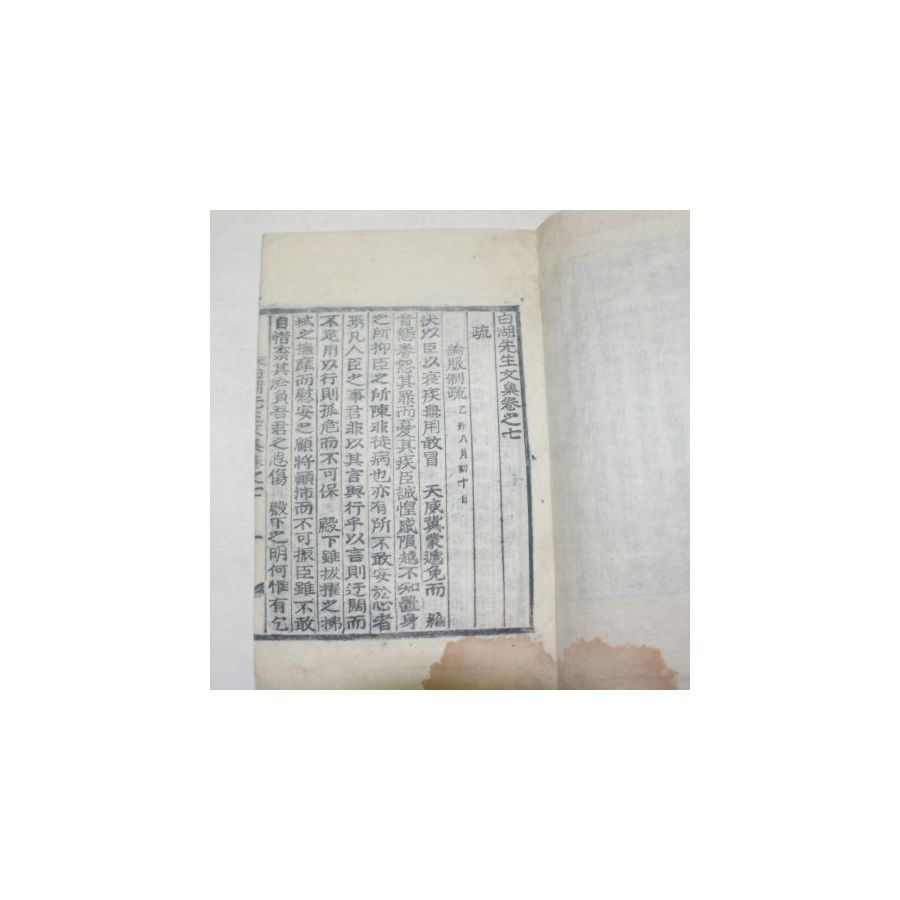 白湖先生文集卷之七
疏
論服制疏 乙卯八月初十日
伏以臣以衰疾無用敢冒 天威冀蒙遞免而 綸
音眷恕其罪而憂其疾臣誠惶感隕越不知置身
之所抑臣之所陳非徒病也亦有所不敢安於心者
焉凡人臣之事君非以其言與行乎以言則迂闊而
不足用以行則孤危而不可保 殿下雖拔擢之拂
拭之撫摩而慰安之顧將顚沛而不可振臣雖不敢
自惜柰其於負吾君之恩傷 殿下之明何惟有乞